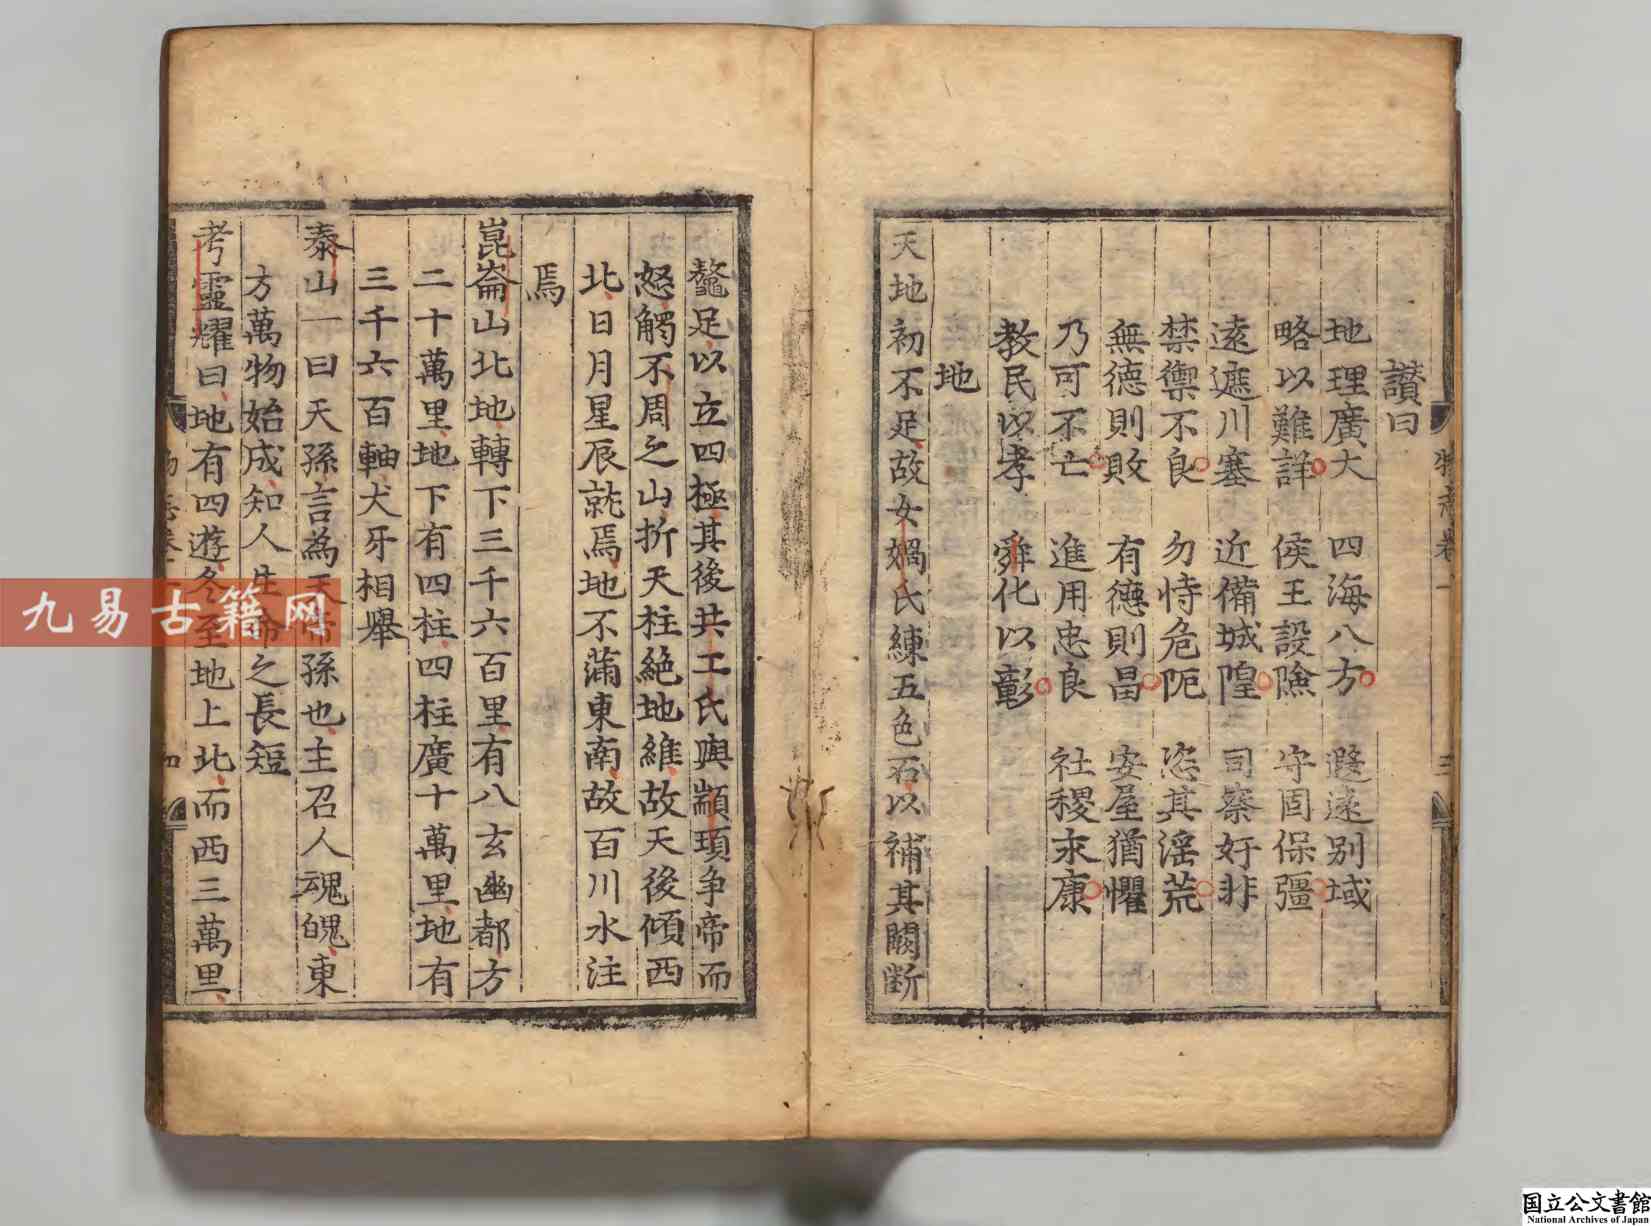 讃曰
地理廣大 四海八方 遐遠別域
略以難詳 侯王設險 守固保彊
遠遮川塞 近備城隍 司察奸非
禁禦不良 勿恃危阨 恣其淫荒
無德則敗 有德則昌 安屋猶懼
乃可不亡 進用忠良 社稷永康
教民以孝 舜化以彰
地
天地初不足故女媧氏練五色石以補其闕斷
鼇足以立四極其後共工氏與顓頊争帝而
怒觸不周之山折天柱絶地維故天後傾西
北日月星辰就焉地不蒲東南故百川水注
焉
崑崙山北地轉下三千六百里有八玄幽都方
二十萬里地下有四柱四柱廣十萬里地有
三千六百軸犬牙相舉
泰山一曰天孫言為天帝孫也主召人魂魄東
方萬物始成知人生命之長短
考靈耀曰地有四遊冬至地上北而西三萬里
物志卷一
三
九易古籍网
国立公文書館
National Archives of Japan